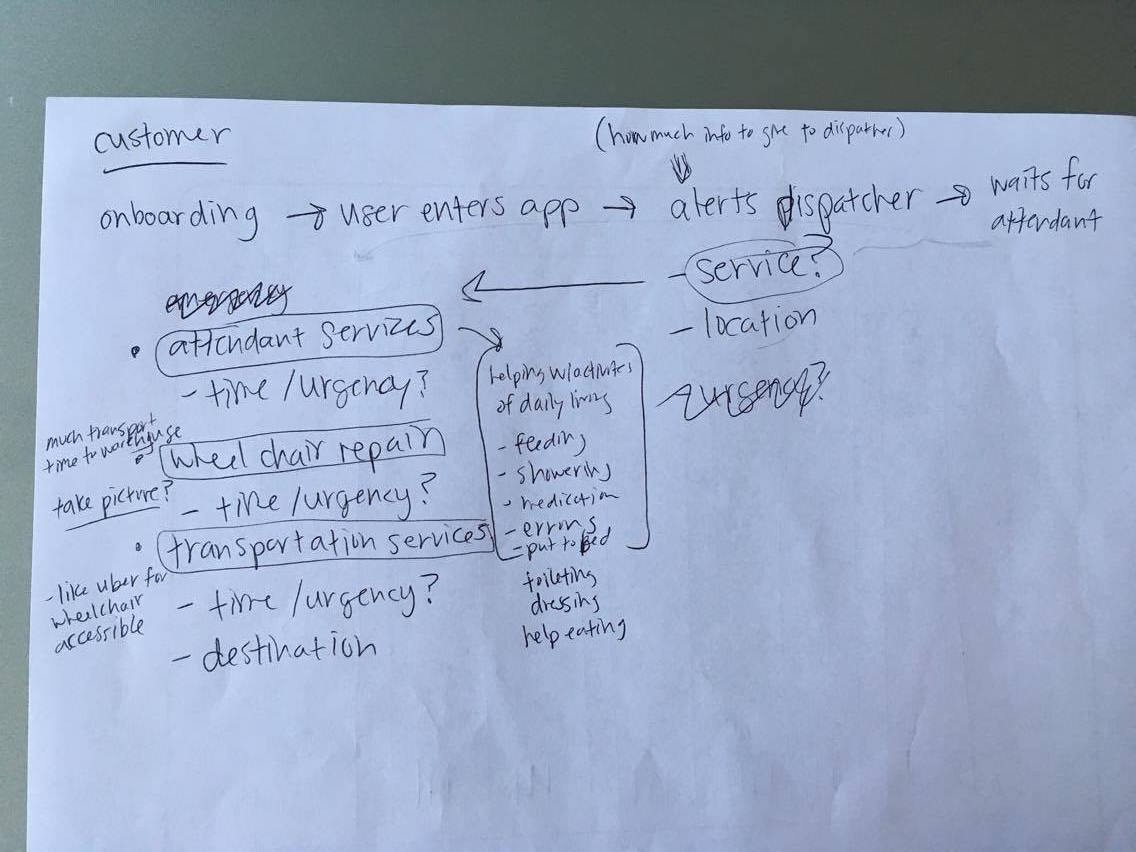 customer
(how much info to give to dispather)
onboarding → user enters app → alerts dispatcher → waits for
attendant
- service?
- location
urgency?
emergency
• attendant services
- time/urgency?
much transport
time to warehouse
• wheel chair repair
take picture?
- time/urgency?
• transportation services
- like uber for
wheelchair
accessible
- time/urgency?
- destination
helping w/activites
of daily living
- feeding
- showering
- medication
- errons
- put to bed
toileting
dressing
help eating